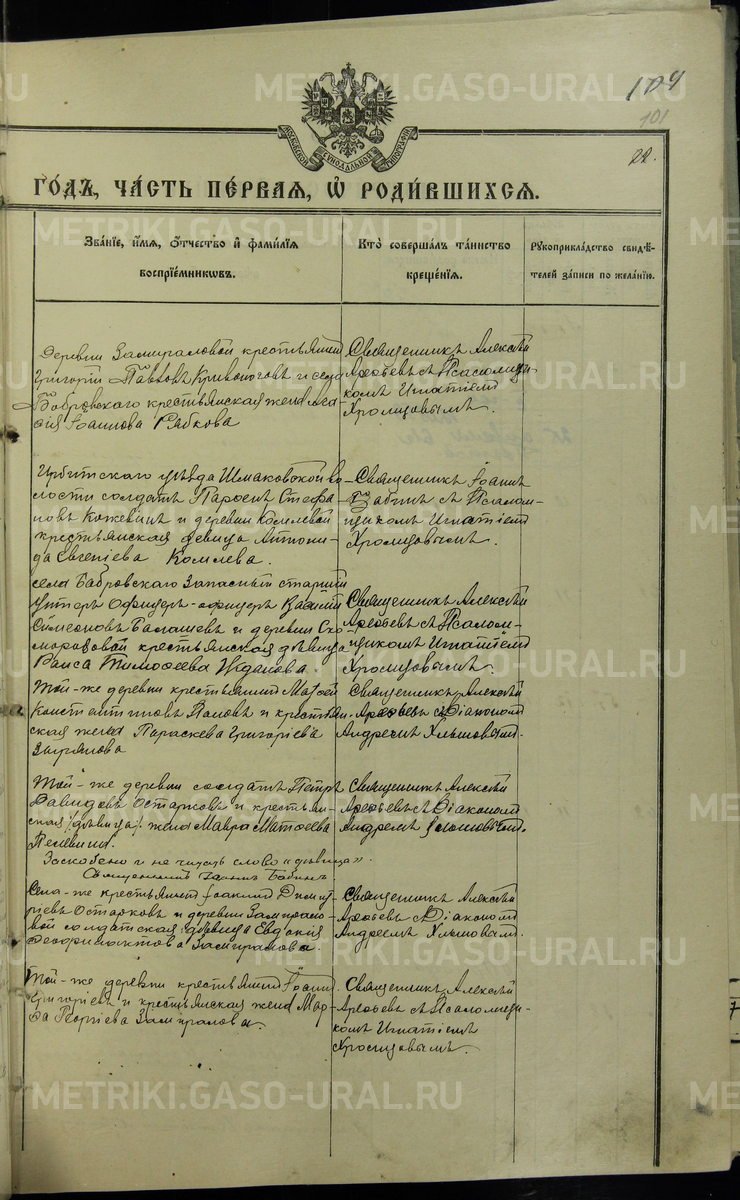 METRIKI.GASO-URAL.RU
104
101
22.
МОСКОВСКОЙ СѴНОДАЛЬНОЙ ТИПОГРАФІИ
ГО́ДЪ, ЧА́СТЬ ПЕ́РВАЯ, Ѡ҆ РОДИ́ВШИХСЯ.
Зва́нїе, и҆́мя, ѻ҆́тчество и҆ фами́лїя
воспрїе́мникѡвъ.
Кто̀ соверша́лъ та́инство
креще́нїя.
Рꙋкоприкла́дство свидѣ́-
телей за́писи по жела́нїю.
Деревни Замираловой крестьянинъ
Григорій Павловъ Кривоноговъ и села
Бобровскаго крестьянская жена
Іоаннова Рябкова
Священникъ Алексѣй
Арефьевъ съ Псаломщи-
комъ Игнатіемъ
Хромцовымъ.
Ирбитскаго уѣзда Шмаковской во-
лости солдатъ Парѳенъ Стефа-
новъ Кожевинъ и деревни Комлевой
крестьянская дѣвица Антони-
да Евгеніева Комлева.
Священникъ Іоаннъ
Бабинъ съ Псалом-
щикомъ Игнатіемъ
Хромцовымъ.
села Бобровскаго Запасный старшій
Унтеръ Офицеръ-офицеръ Василій
Симеоновъ Балашевъ и деревни Ско-
мороховой крестьянская дѣвица
Раиса Тимофеева Жданова.
Священникъ Алексѣй
Арефьевъ съ Псалом-
щикомъ Игнатіемъ
Хромцовымъ.
Той-же деревни крестьянинъ Матѳей
Константиновъ Поповъ и крестьян-
ская жена Параскева Григоріева
Священникъ Алексѣй
Арефьевъ съ Діакономъ
Андреемъ Хлыновымъ.
Той-же деревни солдатъ Петръ
Давидовъ Остарковъ и крестьян-
ская /дѣвица/ жена Мавра Матѳеева
Священникъ Алексѣй
Арефьевъ съ Діакономъ
Андреемъ Хлыновымъ.
Заскоблено и не читать слово "дѣвица".
Священникъ Іоаннъ Бабинъ.
Села-же крестьянинъ Іоакимъ Димит-
ріевъ Остарковъ и деревни Замирало-
вой солдатская дѣвица Евдокія
Феофилактова Замиралова.
Священникъ Алексѣй
Арефьевъ съ Діакономъ
Андреемъ Хлыновымъ.
Той-же деревни крестьянинъ Іоаннъ
Григоріевъ и крестьянская жена Мар-
ѳа Георгіева Замиралова.
Священникъ Алексѣй
Арефьевъ съ Псаломщи-
комъ Игнатіемъ
Хромцовымъ.